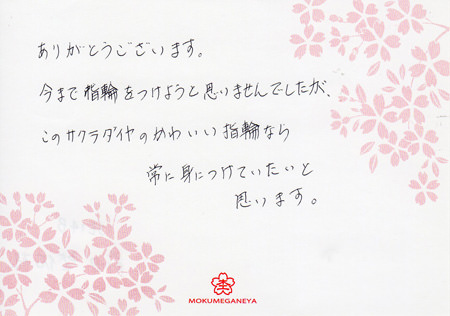 ありがとうございます。
今まで指輪をつけようと思いませんでしたが、
このサクラダイヤのかわいい指輪なら
常に身につけていたいと
思います。
MOKUMEGANEYA